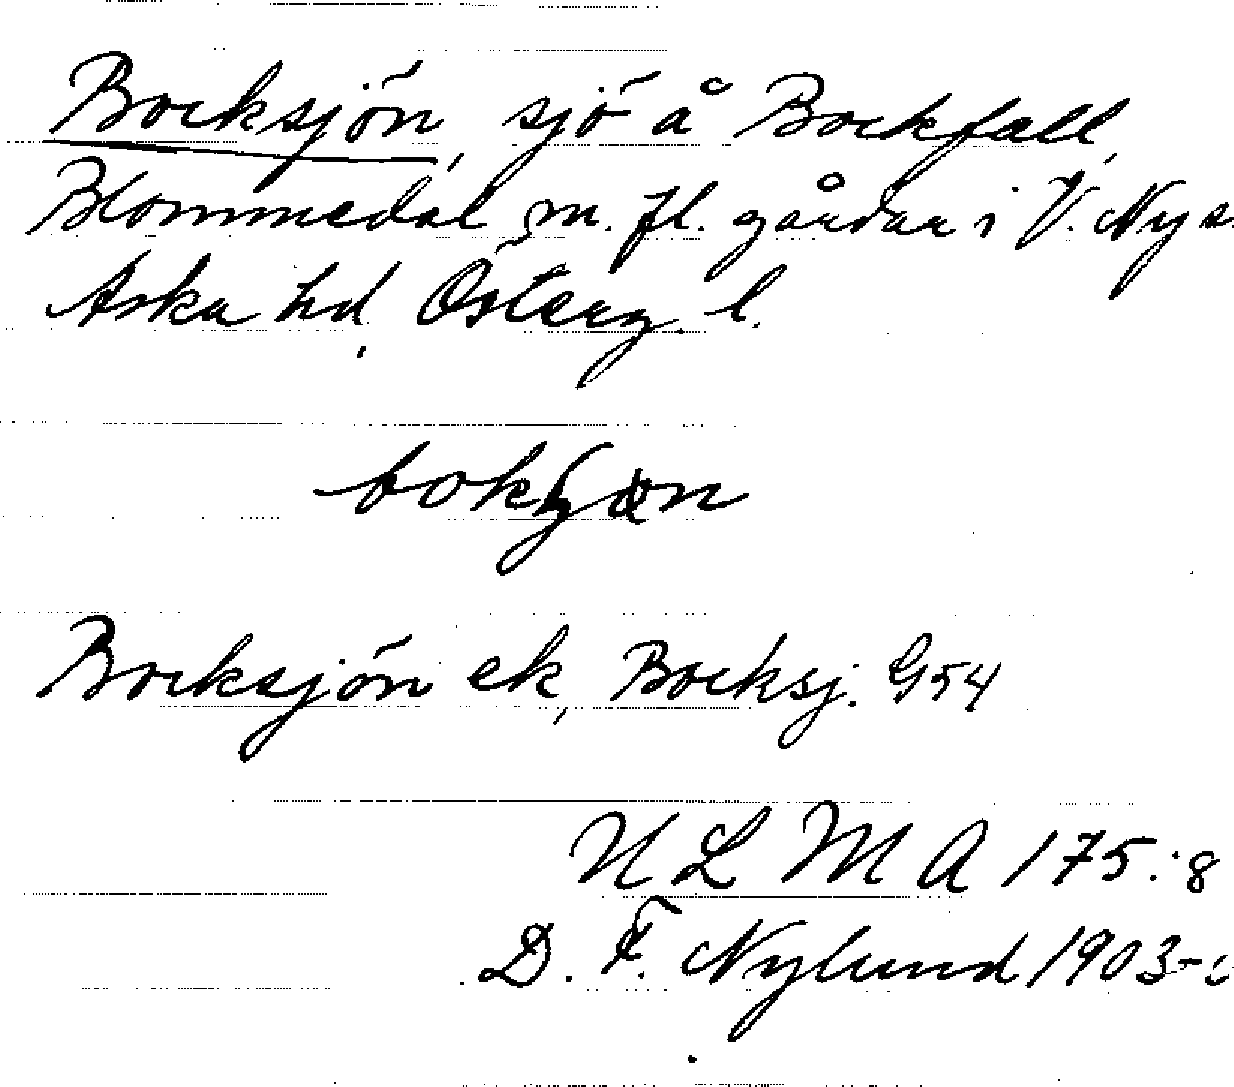 Bocksjön, sjö å Bockfall,
Blommedal m. fl. gårdar i V. Ny s.
Aska hd, Österg. l.
Bocksjön ek, Bocksj. G54
N L M A 175:8
D. F. Nylund 1903-